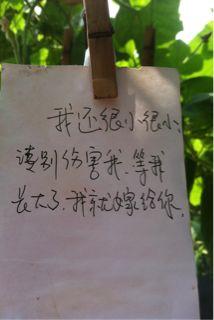 我还很小很小,
请别伤害我.等我
长大了.我就嫁给你.